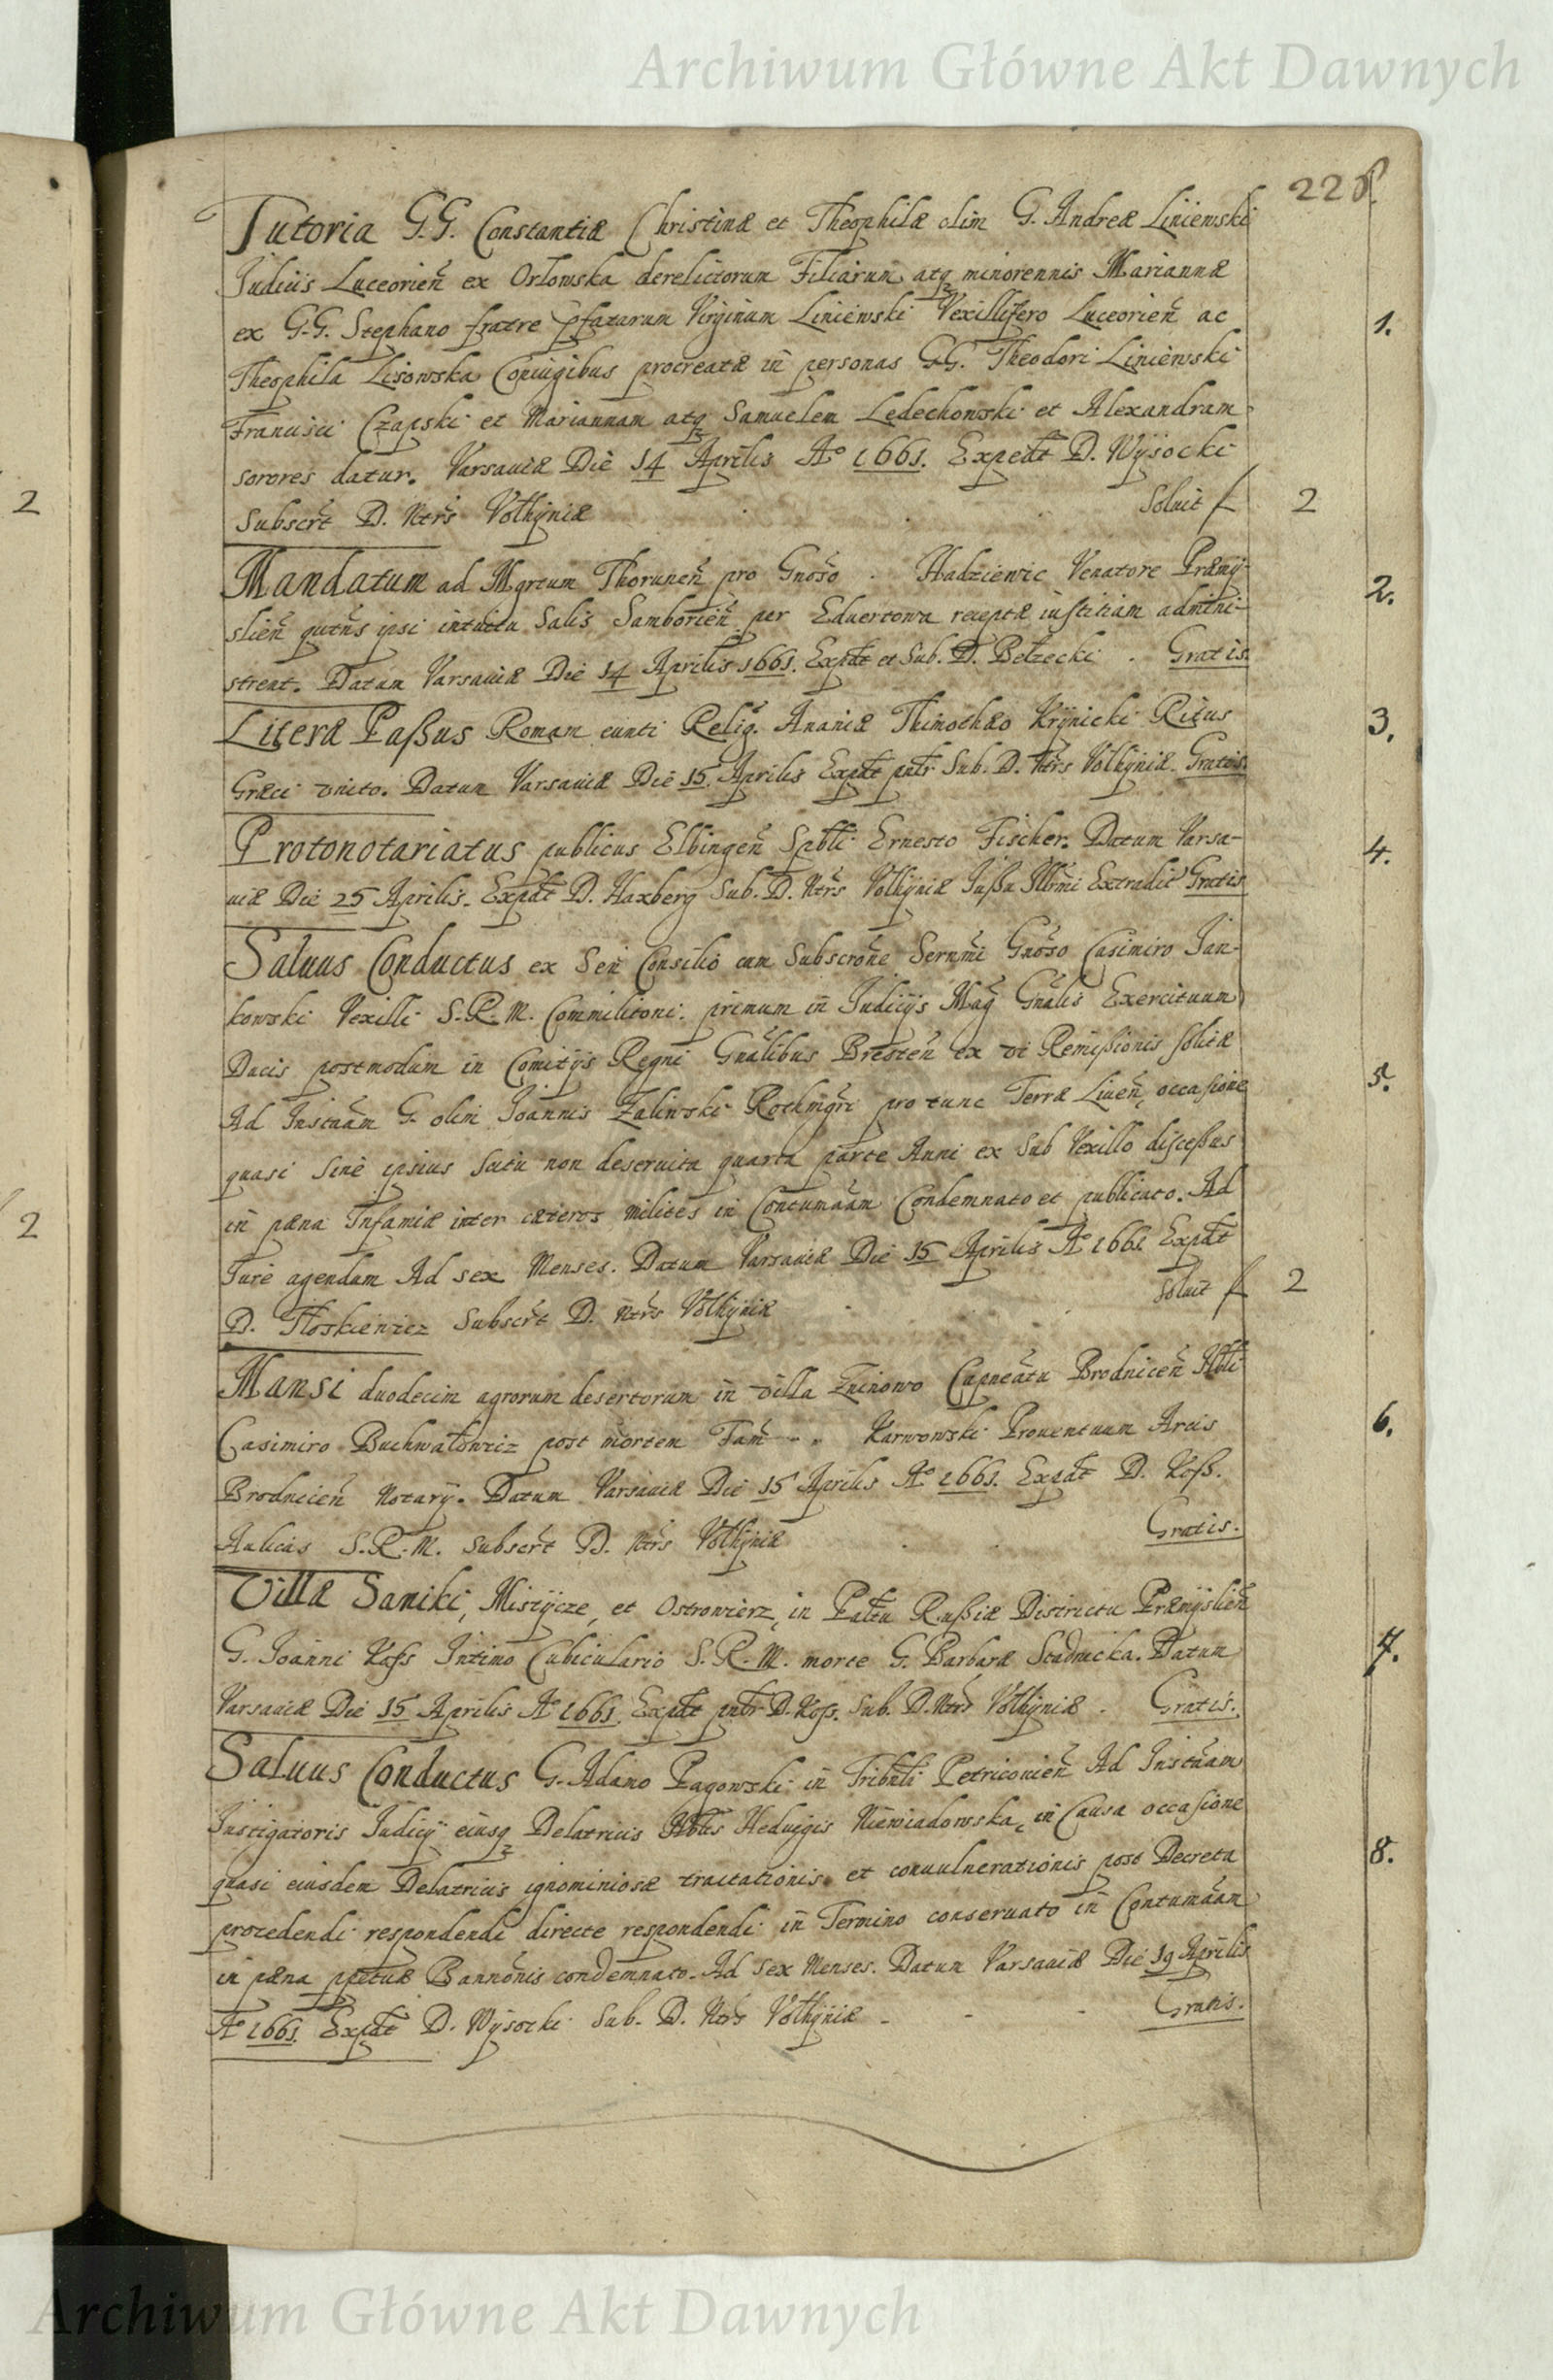 Archiwum Główne Akt Dawnych
228.
Tutoria G.G. Constantiæ Christinæ et Theophilæ olim G. Andreæ Liniewski
Judicis Luceorien̄ ex Orłowska derelictorum Filiarum atq₃ minorennis Mariannæ
ex G.G. Stephano fratre p̄fatarum Virginum Liniewski Vexillifero Luceorien̄ ac 1.
Theophila Lisowska Coniugibus procreatæ in personas G.G. Theodori Liniewski
Francisci Czapski et Mariannam atq₃ Samuelem Ledechowski et Alexandram
sorores datur. Varsauiæ Die 14 Aprilis Aº 1661. Expedt D. Wysocki
Subscrt D. Ntrs Volhyniæ Soluit f 2
2
Mandatum ad Mgrtum Thorunen̄ pro Gnoso . Hadziewic Venatore Præmy- 2.
slien̄ qutns ipsi intuitu Salis Samborien̄ per Eduertown receptæ iustitiam admini-
strent. Datum Varsauiæ Die 14 Aprilis 1661. Expdt et Sub. D. Bełzecki . Gratis.
Literæ Paßus Romam eunti Relig. Ananiæ Thimothæo Krynicki Ritus 3.
Græci vnito. Datum Varsauiæ Die 15. Aprilis Expdt pntr Sub. D. Ntrs Volhyniæ. Gratis.
Protonotariatus publicus Elbingen̄ Spbli Ernesto Fischer. Datum Varsa- 4.
uiæ Die 25 Aprilis. Expdt D. Haxberg Sub. D. Ntrs Volhyniæ Jußu Illrmi Extradit Gratis
Saluus Conductus ex Sen̄ Consilio cum Subscrone Sernmi Gnoso Casimiro Jan-
kowski Vexilli S.R.M. Commilitoni. primum in Judicijs Mag Gnalis Exercituum
Ducis postmodum in Comitijs Regni Gnalibus Bresten̄ ex vi Remißionis solitæ 5.
Ad Instnam G. olim Joannis Zaliwski Rothmgri pro tunc Terræ Liuen̄, occasione
quasi sine ipsius scitu non deseruita quarta parte Anni ex sub Vexillo disceßus
in pæna Infamiæ inter cæteros milites in Contumaam Condemnato et publicato. Ad
Jure agendum Ad sex Menses. Datum Varsauiæ Die 15 Aprilis Aº 1661 Expdt
2
D. Floskiewicz Subscrt D. Ntrs Volhyniæ Soluit f 2
Mansi duodecim agrorum desertorum in villa Zninowo Capneatu Brodnicen̄ Nbli
Casimiro Buchwałowicz post mortem Fam - . Karwowski Prouentuum Arcis 6.
Brodnicien̄ Notarij. Datum Varsauiæ Die 15 Aprilis Aº 1661. Expdt D. Koß.
Aulicus S.R.M. Subscrt D. Ntrs Volhyniæ Gratis.
Villæ Saniki, Mistycze, et Ostrowierz, in Paltu Rußiæ Districtu Præmyslien̄
G. Joanni Koss Intimo Cubiculario S.R.M. morte G. Barbaræ Stadnicka. Datum 7.
Varsauiæ Die 15 Aprilis Aº 1661. Expdt pntr D. Koss. Sub. D. Ntrs Volhyniæ . Gratis.
Saluus Conductus G. Adamo Pągowski in Tribnli Petricouien̄ Ad Instnam
Instigatoris Judicij eiusq₃ Delatricis Nblis Heduigis Niewiadowska, in Causa occasione
quasi eiusdem Delatricis ignominiosæ tractationis et conuulnerationis post Decreta 8.
procedendi respondendi directe respondendi in Termino conseruato in Contumaam
in pæna ppetuæ Bannonis condemnato. Ad sex Menses. Datum Varsauiæ Die 19 Aprilis
Aº 1661. Expdt D. Wysocki Sub. D. Ntrs Volhyniæ - - Gratis.
Archiwum Główne Akt Dawnych